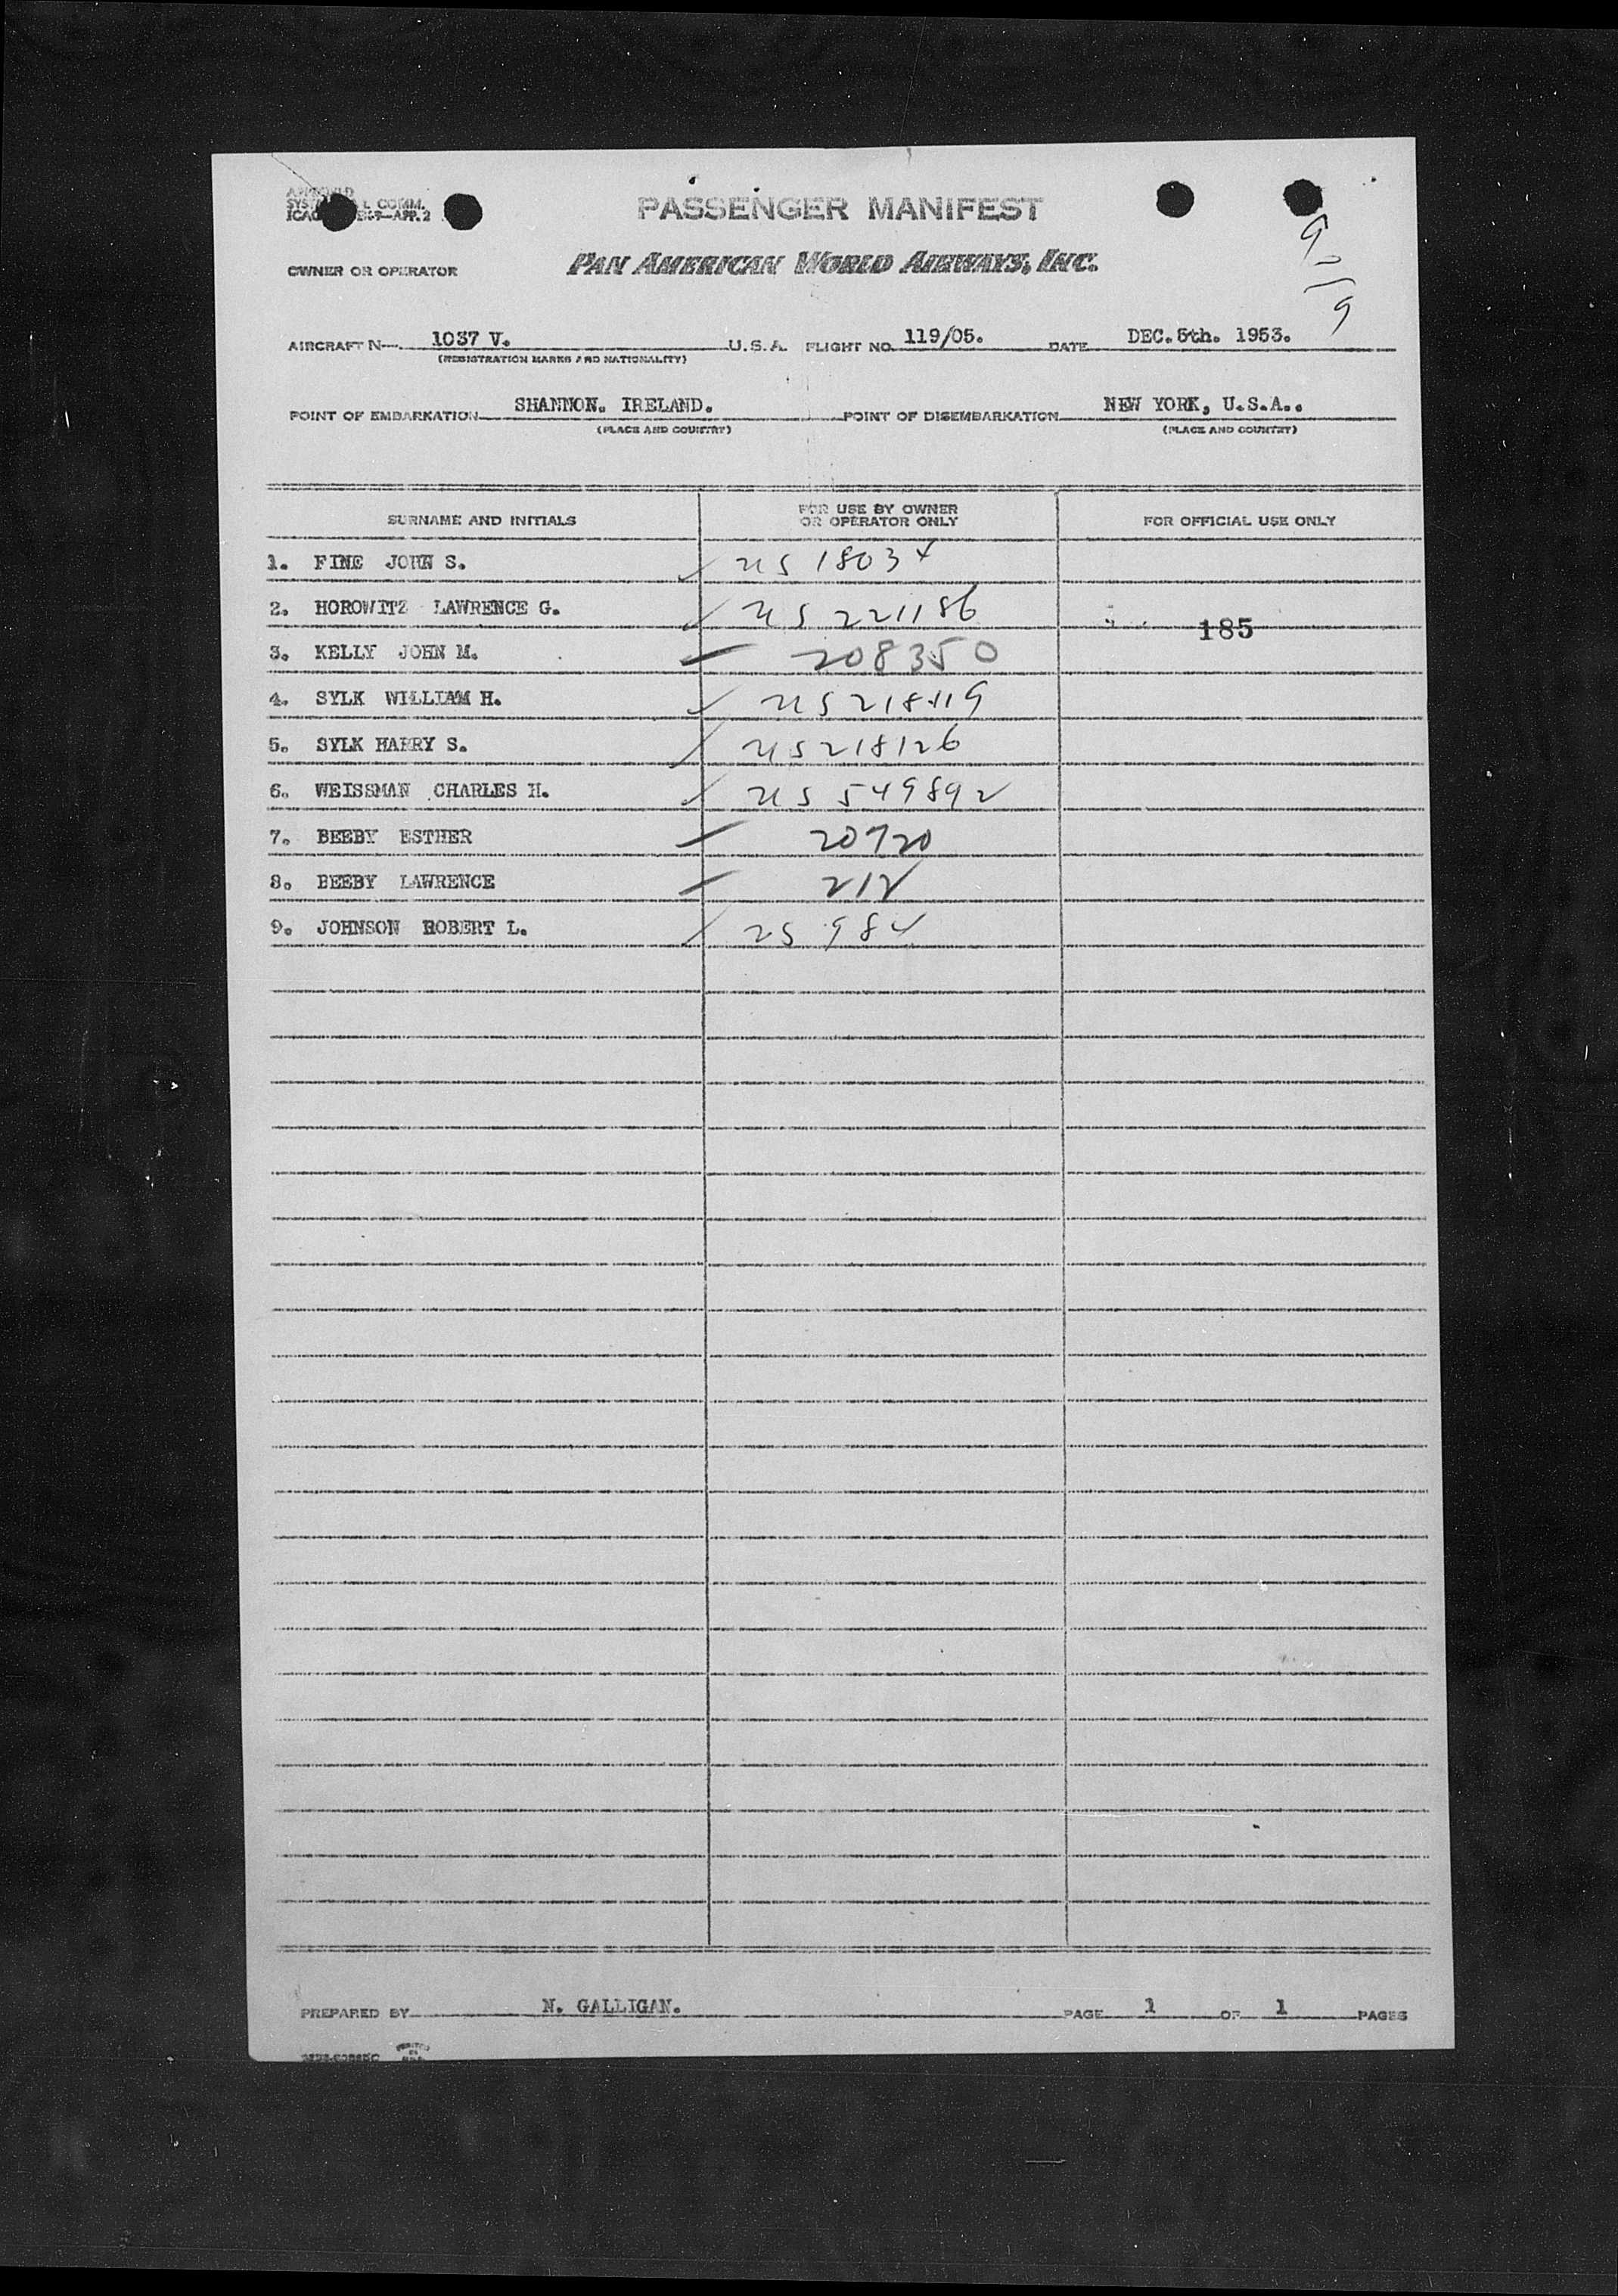 APPROVED
COMM.
APP. 2
PASSENGER MANIFEST
OWNER OR OPERATOR PAN AMERICAN WORLD AIRWAYS, INC.
AIRCRAFT N— 1037 V. U.S.A. FLIGHT NO. 119/05. DATE DEC.5th. 1953.
(REGISTRATION MARKS AND NATIONALITY)
POINT OF EMBARKATION SHANNON. IRELAND. POINT OF DISEMBARKATION NEW YORK, U.S.A..
(PLACE AND COUNTRY) (PLACE AND COUNTRY)
SURNAME AND INITIALS FOR USE BY OWNER OR OPERATOR ONLY FOR OFFICIAL USE ONLY
1. FINE JOHN S. US 18034
2. HOROWITZ LAWRENCE G. US 221186
185
3. KELLY JOHN M. 208350
4. SYLK WILLIAM H. US 218119
5. SYLK HARRY S. US 218126
6. WEISSMAN CHARLES H. US 549892
7. BEEBY ESTHER 20720
8. BEEBY LAWRENCE 212
9. JOHNSON ROBERT L. 25984
PREPARED BY N. GALLIGAN. PAGE 1 OF 1 PAGES